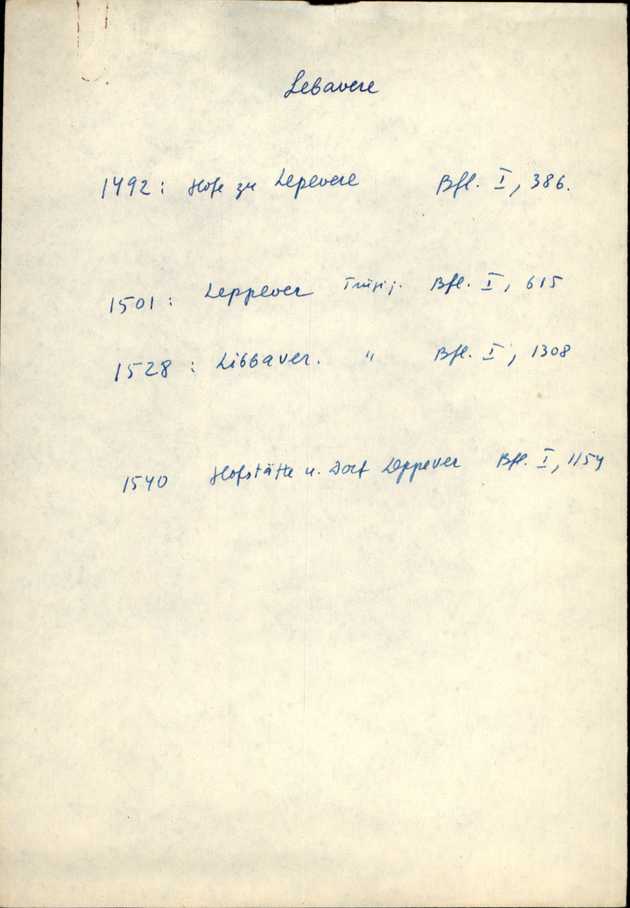 Lebavere
1492: Hofe zu Lepevere Bfl. I, 386.
1501: Leppever Bfl. I, 615
1528: Libbaver. " Bfl. I, 1308
1540 Hofstätte u. Dorf Leppever Bfl. I, 1154